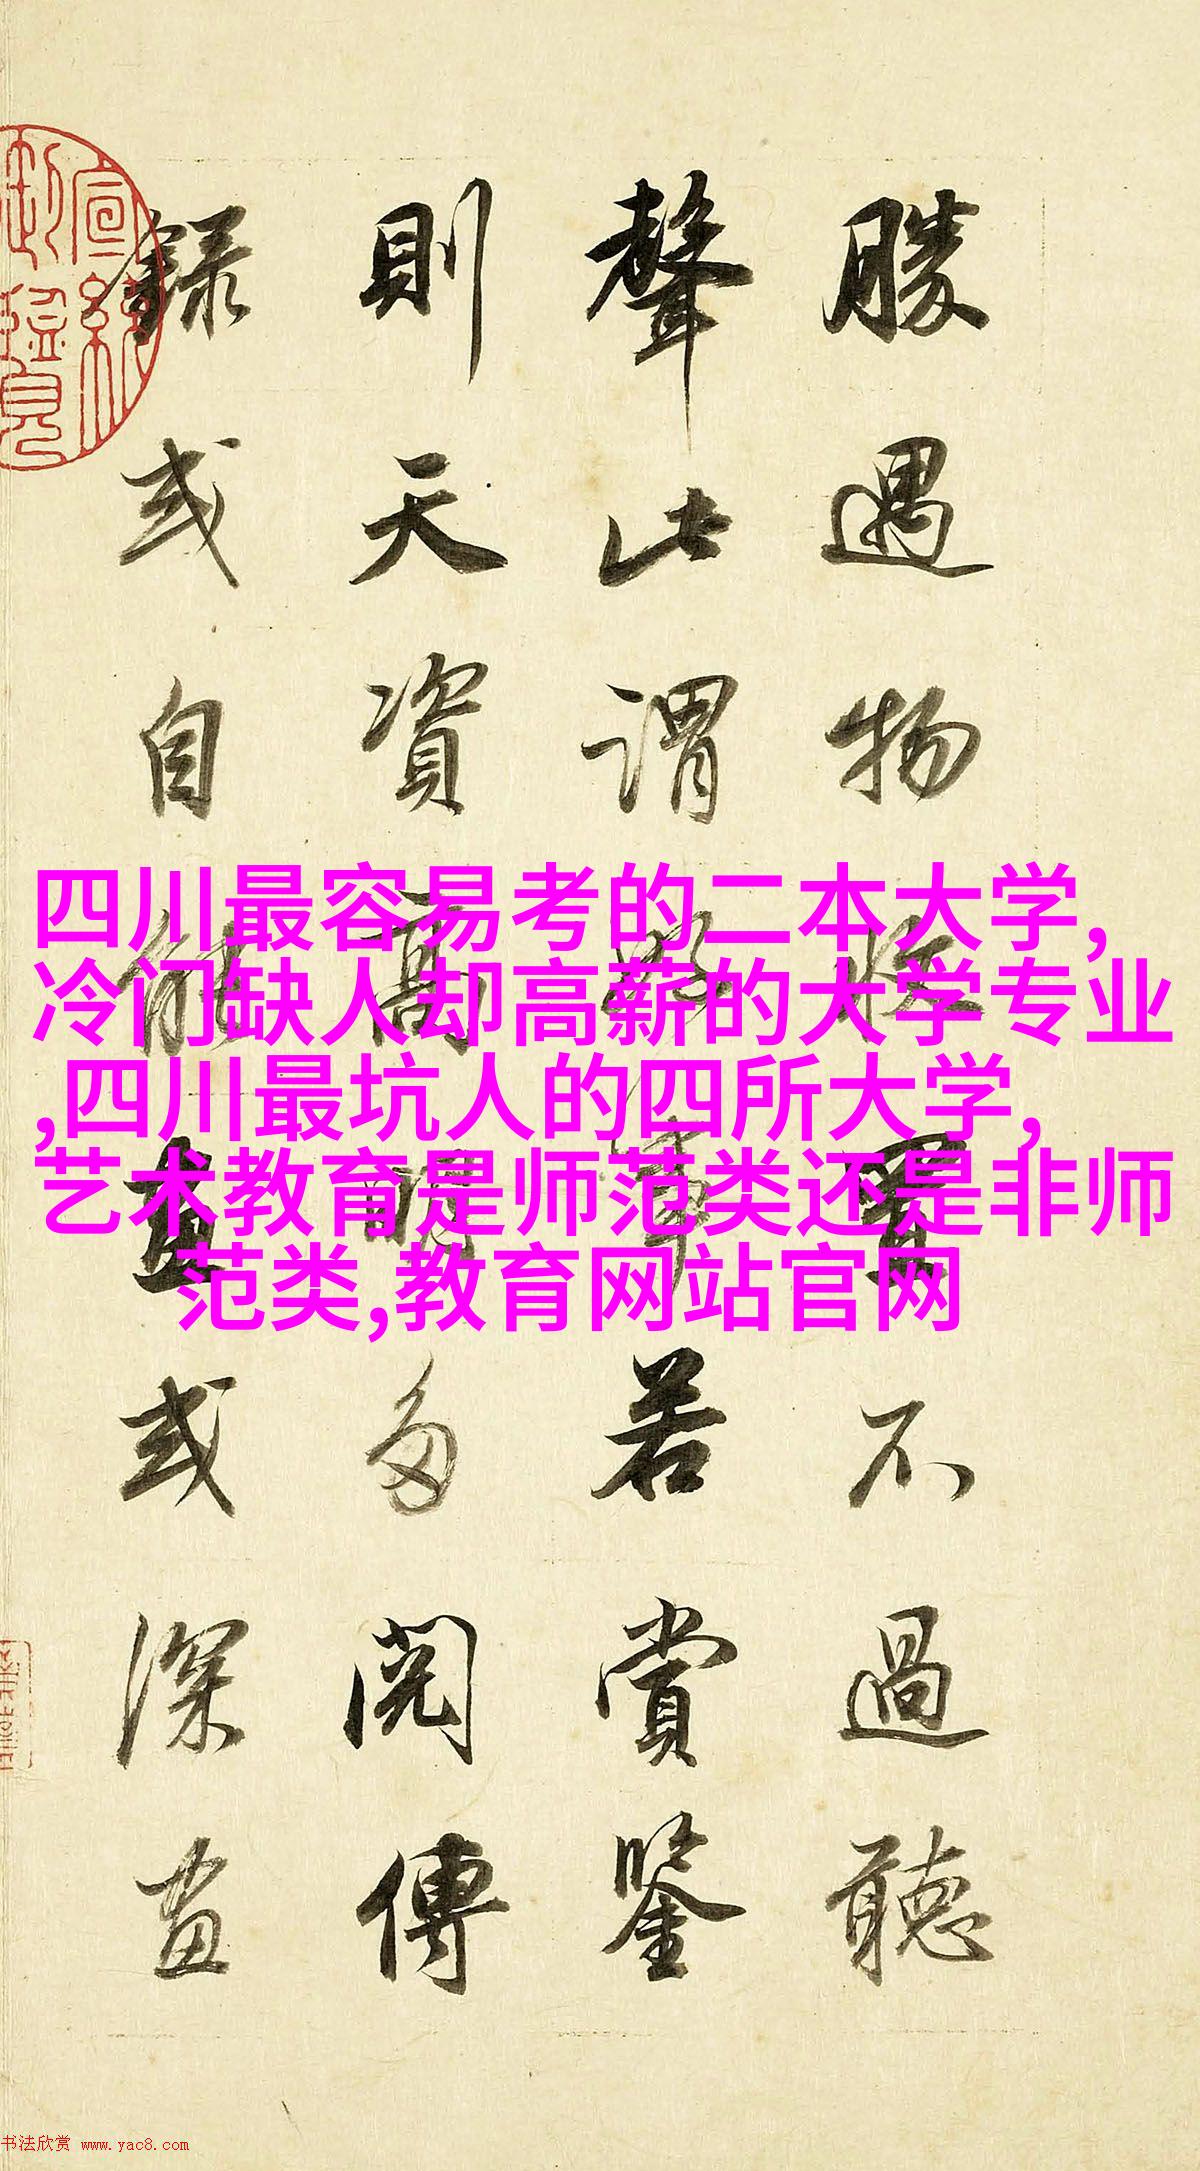 勝遇物收置不過聽
聲此謂好事若賞鑒
則天資高明多閱傳
錄或自能畫或深畫
宣統
四川最容易考的二本大学,
冷门缺人却高薪的大学专业
,四川最坑人的四所大学,
艺术教育是师范类还是非师
范类,教育网站官网
书法欣赏 www.yac8.com